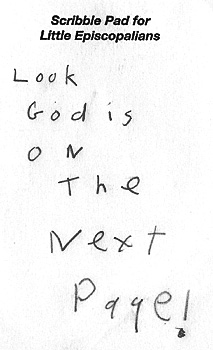 Scribble Pad for
Little Episcopalians
Look
God is
ON
The
Next
Page!